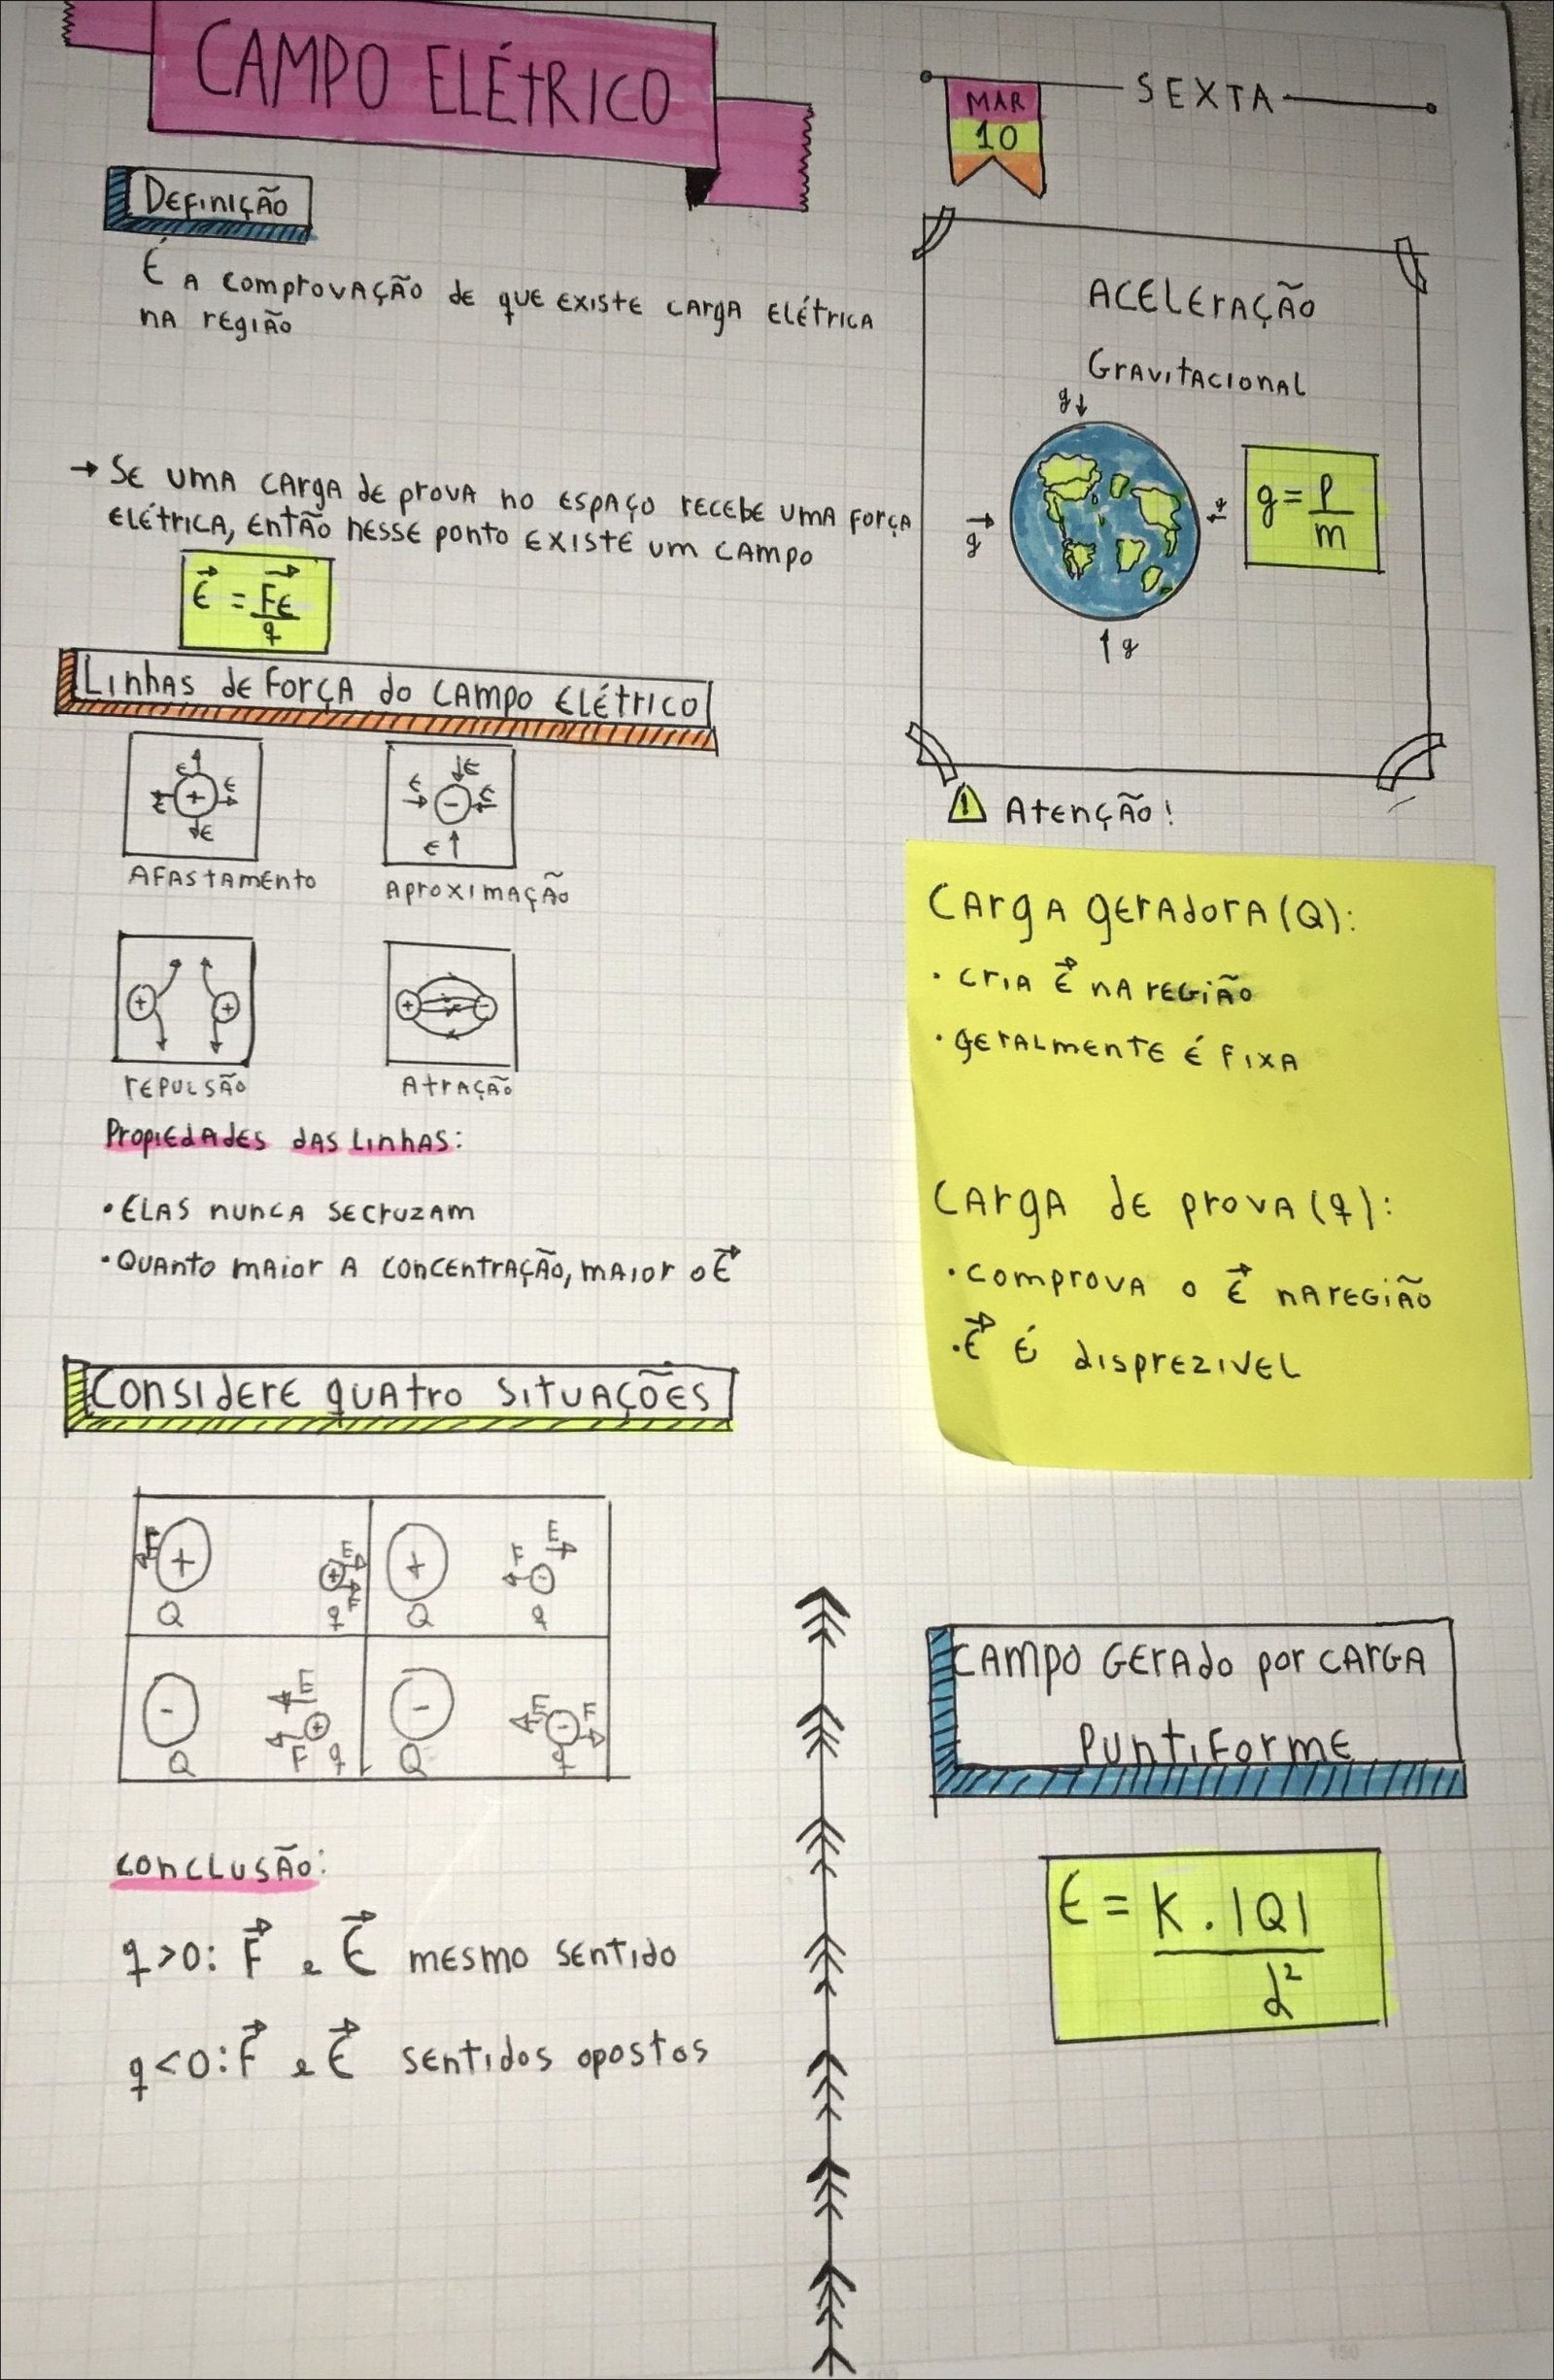 CAMPO ELÉTRICO
MAR
10
SEXTA
DEFINIÇÃO
É A COMPROVAÇÃO DE QUE EXISTE CARGA ELÉTRICA
NA REGIÃO
→ SE UMA CARGA DE PROVA NO ESPAÇO RECEBE UMA FORÇA
ELÉTRICA, ENTÃO NESSE PONTO EXISTE UM CAMPO
E⃗ = F⃗E / q
ACELERAÇÃO
GRAVITACIONAL
g↓
g⃗
g
g = P / m
↑g
LINHAS DE FORÇA DO CAMPO ELÉTRICO
E E E E +
E E E E -
AFASTAMENTO
APROXIMAÇÃO
+ +
+ -
REPULSÃO
ATRAÇÃO
PROPIEDADES DAS LINHAS:
• ELAS NUNCA SE CRUZAM
• QUANTO MAIOR A CONCENTRAÇÃO, MAIOR O E⃗
! ATENÇÃO!
CARGA GERADORA (Q):
• CRIA E⃗ NA REGIÃO
• GERALMENTE É FIXA
CARGA DE PROVA (q):
• COMPROVA O E⃗ NA REGIÃO
• E⃗ É DISPREZIVEL
CONSIDERE QUATRO SITUAÇÕES
F + E + F
Q q
+ F E -
Q q
- E F +
Q q
- E - F
Q q
CONCLUSÃO:
q>0: F⃗ e E⃗ MESMO SENTIDO
q<0: F⃗ e E⃗ SENTIDOS OPOSTOS
CAMPO GERADO POR CARGA
PUNTIFORME
E = K . |Q| / d²
150